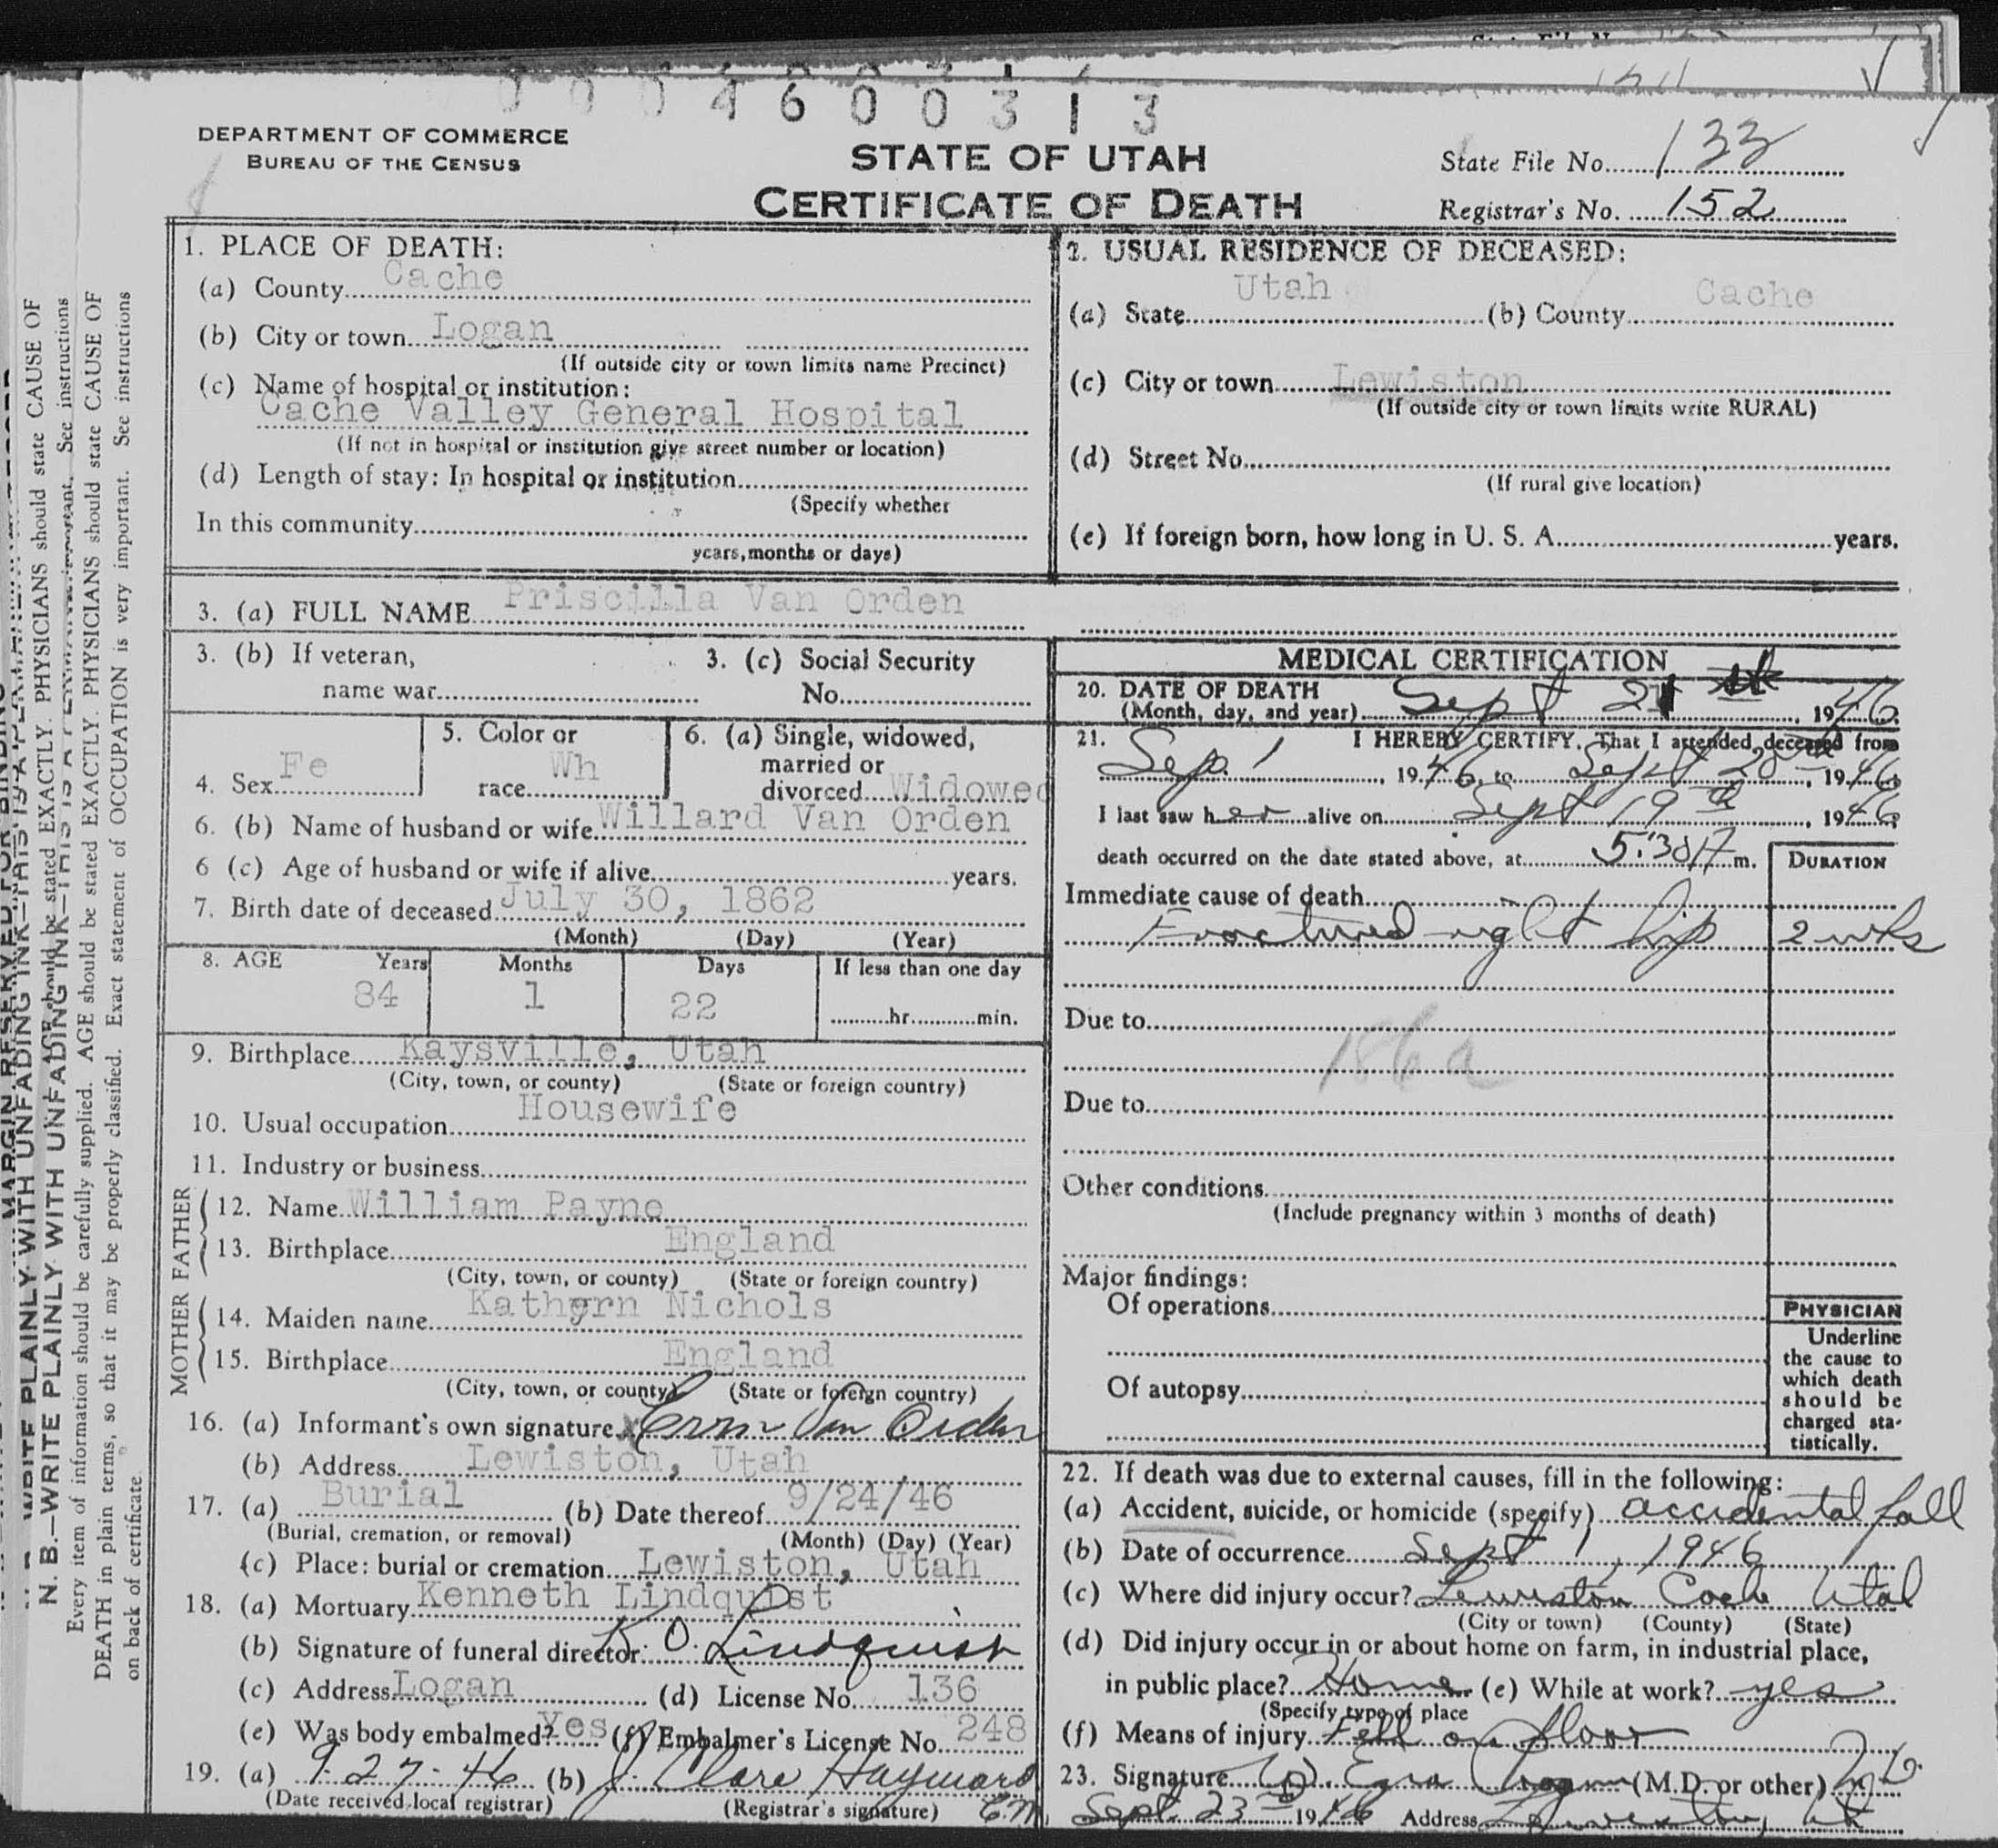 0 0 0 4 6 0 0 3 1 3
DEPARTMENT OF COMMERCE
BUREAU OF THE CENSUS
STATE OF UTAH
CERTIFICATE OF DEATH
State File No. 133
Registrar's No. 152
1. PLACE OF DEATH:
(a) County Cache
(b) City or town Logan
(If outside city or town limits name Precinct)
(c) Name of hospital or institution:
Cache Valley General Hospital
(If not in hospital or institution give street number or location)
(d) Length of stay: In hospital or institution
(Specify whether
In this community
years, months or days)
2. USUAL RESIDENCE OF DECEASED:
(a) State Utah (b) County Cache
(c) City or town Lewiston
(If outside city or town limits write RURAL)
(d) Street No.
(If rural give location)
(e) If foreign born, how long in U. S. A. years.
3. (a) FULL NAME Priscilla Van Orden
3. (b) If veteran, name war
3. (c) Social Security No.
4. Sex Fe
5. Color or race Wh
6. (a) Single, widowed, married or divorced Widowed
6. (b) Name of husband or wife Willard Van Orden
6 (c) Age of husband or wife if alive years.
7. Birth date of deceased July 30, 1862
(Month) (Day) (Year)
8. AGE Years Months Days If less than one day
84 1 22 hr. min.
9. Birthplace Kaysville, Utah
(City, town, or county) (State or foreign country)
10. Usual occupation Housewife
11. Industry or business
FATHER
12. Name William Payne
13. Birthplace England
(City, town, or county) (State or foreign country)
MOTHER
14. Maiden name Kathyrn Nichols
15. Birthplace England
(City, town, or county) (State or foreign country)
16. (a) Informant's own signature X Van Orden
(b) Address Lewiston, Utah
17. (a) Burial (b) Date thereof 9/24/46
(Burial, cremation, or removal) (Month) (Day) (Year)
(c) Place: burial or cremation Lewiston, Utah
18. (a) Mortuary Kenneth Lindquist
(b) Signature of funeral director K. O. Lindquist
(c) Address Logan (d) License No. 136
(e) Was body embalmed? Yes (f) Embalmer's License No. 248
19. (a) 9-27-46 (b) J. Clare Hayward
(Date received local registrar) (Registrar's signature)
MEDICAL CERTIFICATION
20. DATE OF DEATH
(Month, day, and year) Sept 21 st, 1946
21. I HEREBY CERTIFY, That I attended deceased from
Sep. 1, 1946, to Sept 20, 1946
I last saw her alive on Sept 19 th, 1946
death occurred on the date stated above, at 5:30 A m.
DURATION
Immediate cause of death
Fractured right hip 2 wks
Due to
186a
Due to
Other conditions
(Include pregnancy within 3 months of death)
Major findings:
Of operations
Of autopsy
PHYSICIAN
Underline
the cause to
which death
should be
charged sta-
tistically.
22. If death was due to external causes, fill in the following:
(a) Accident, suicide, or homicide (specify) accidental fall
(b) Date of occurrence Sept 1, 1946
(c) Where did injury occur? Lewiston Cache Utah
(City or town) (County) (State)
(d) Did injury occur in or about home on farm, in industrial place,
in public place? Home (e) While at work? yes
(Specify type of place
(f) Means of injury Fell on floor
23. Signature Ezra (M.D. or other)
Sept 23 1946 Address Lewiston, Ut
N. B.—WRITE PLAINLY WITH UNFADING INK—
Every item of information should be carefully supplied. AGE should be stated EXACTLY. PHYSICIANS should state CAUSE OF
DEATH in plain terms, so that it may be properly classified. Exact statement of OCCUPATION is very important. See instructions
on back of certificate.